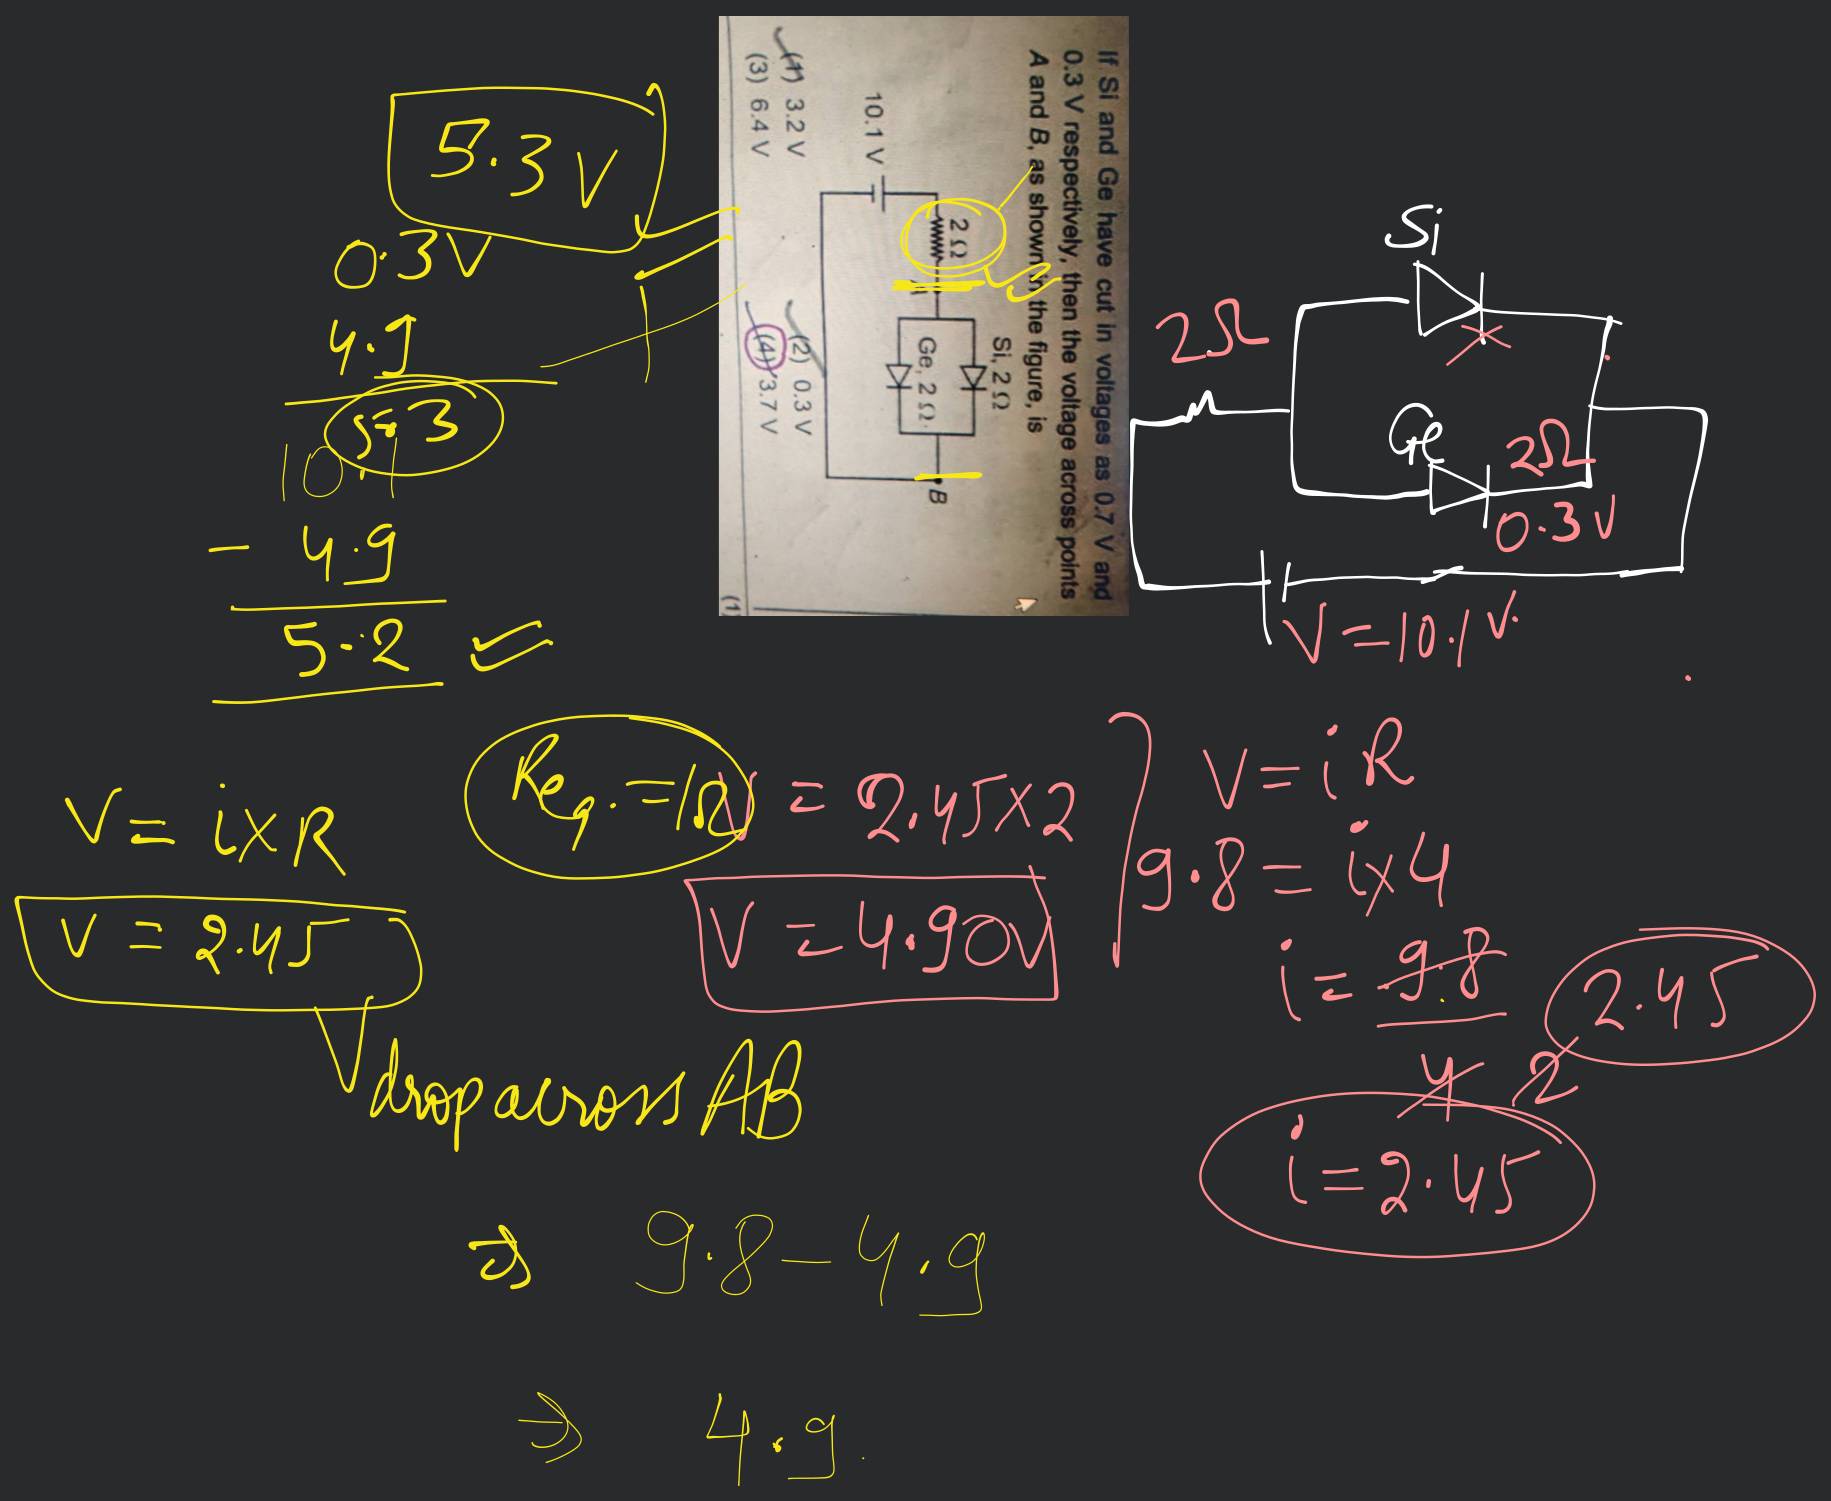 If Si and Ge have cut in voltages as 0.7 V and
0.3 V respectively, then the voltage across points
A and B, as shown in the figure, is
Si, 2 Ω
2 Ω
A
B
Ge, 2 Ω
10.1 V
(1) 3.2 V
(2) 0.3 V
(3) 6.4 V
(4) 3.7 V
(1)
5.3 V
0.3 V
4.9
5.3
10.1
- 4.9
5.2
Si
2Ω
Ge
2Ω
0.3 V
V = 10.1 V.
V = i × R
V = 2.45
drop across AB
⇒ 9.8 - 4.9
⇒ 4.9
Req. = 1Ω
V = 2.45 × 2
V = 4.90V
V = i R
9.8 = i × 4
i = 9.8
4 2
2.45
i = 2.45